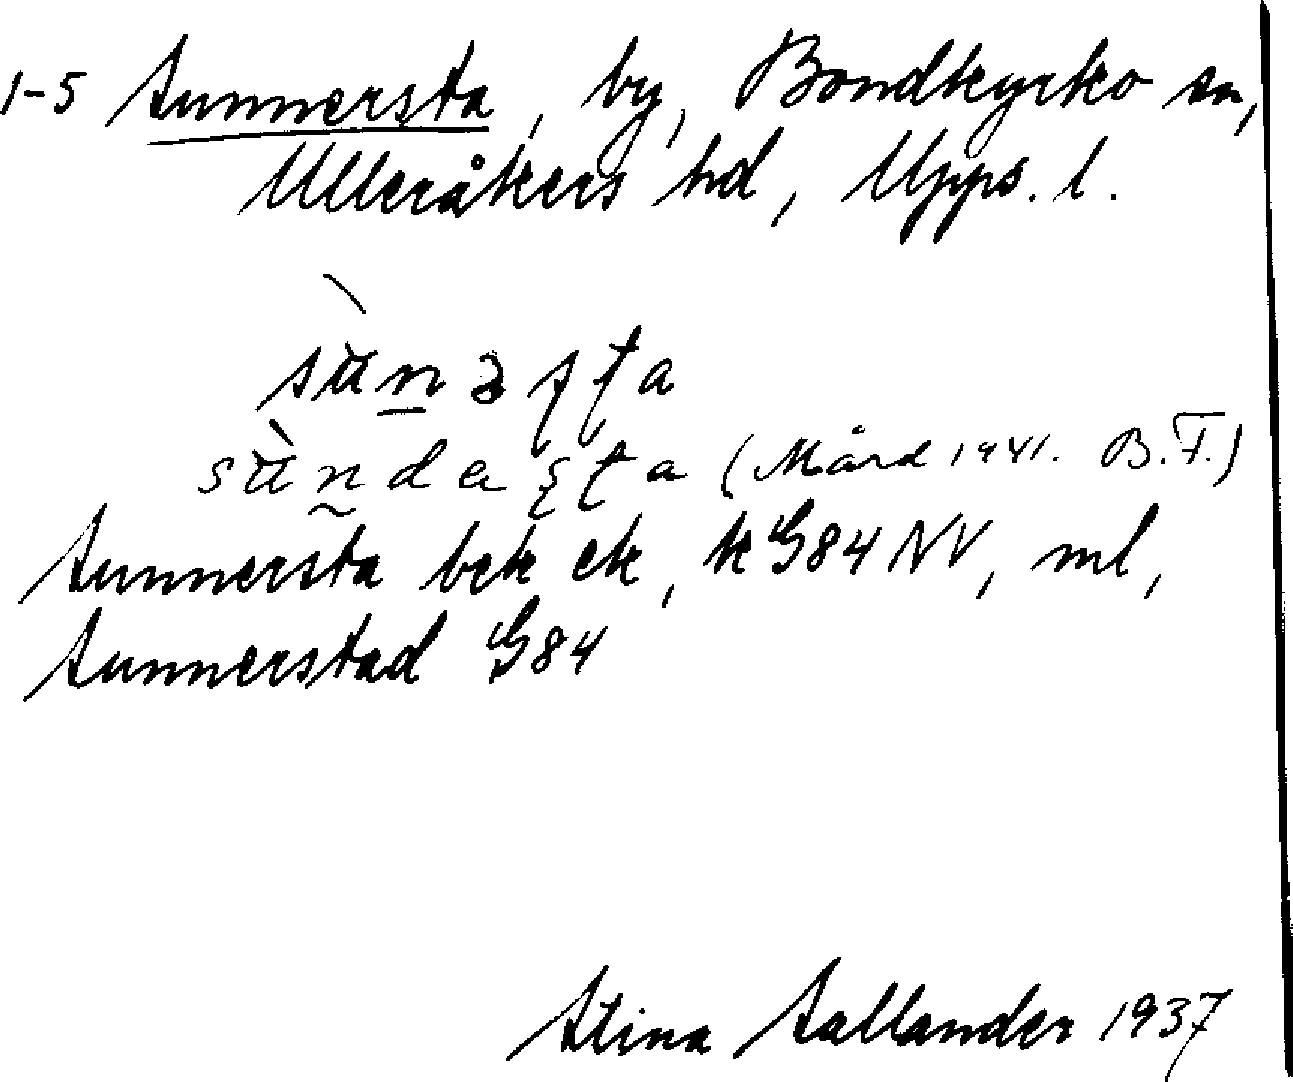 1-5 Sunnersta, by, Bondkyrko sn,
Ulleråkers hd, Upps. l.
sùn̲əʂʈa
sùn̰daʂʈa (Mård 1941. B.F.)
Sunnersta bek ek, k G84 NV, ml,
Sunnerstad G84
Stina Sallander 1937